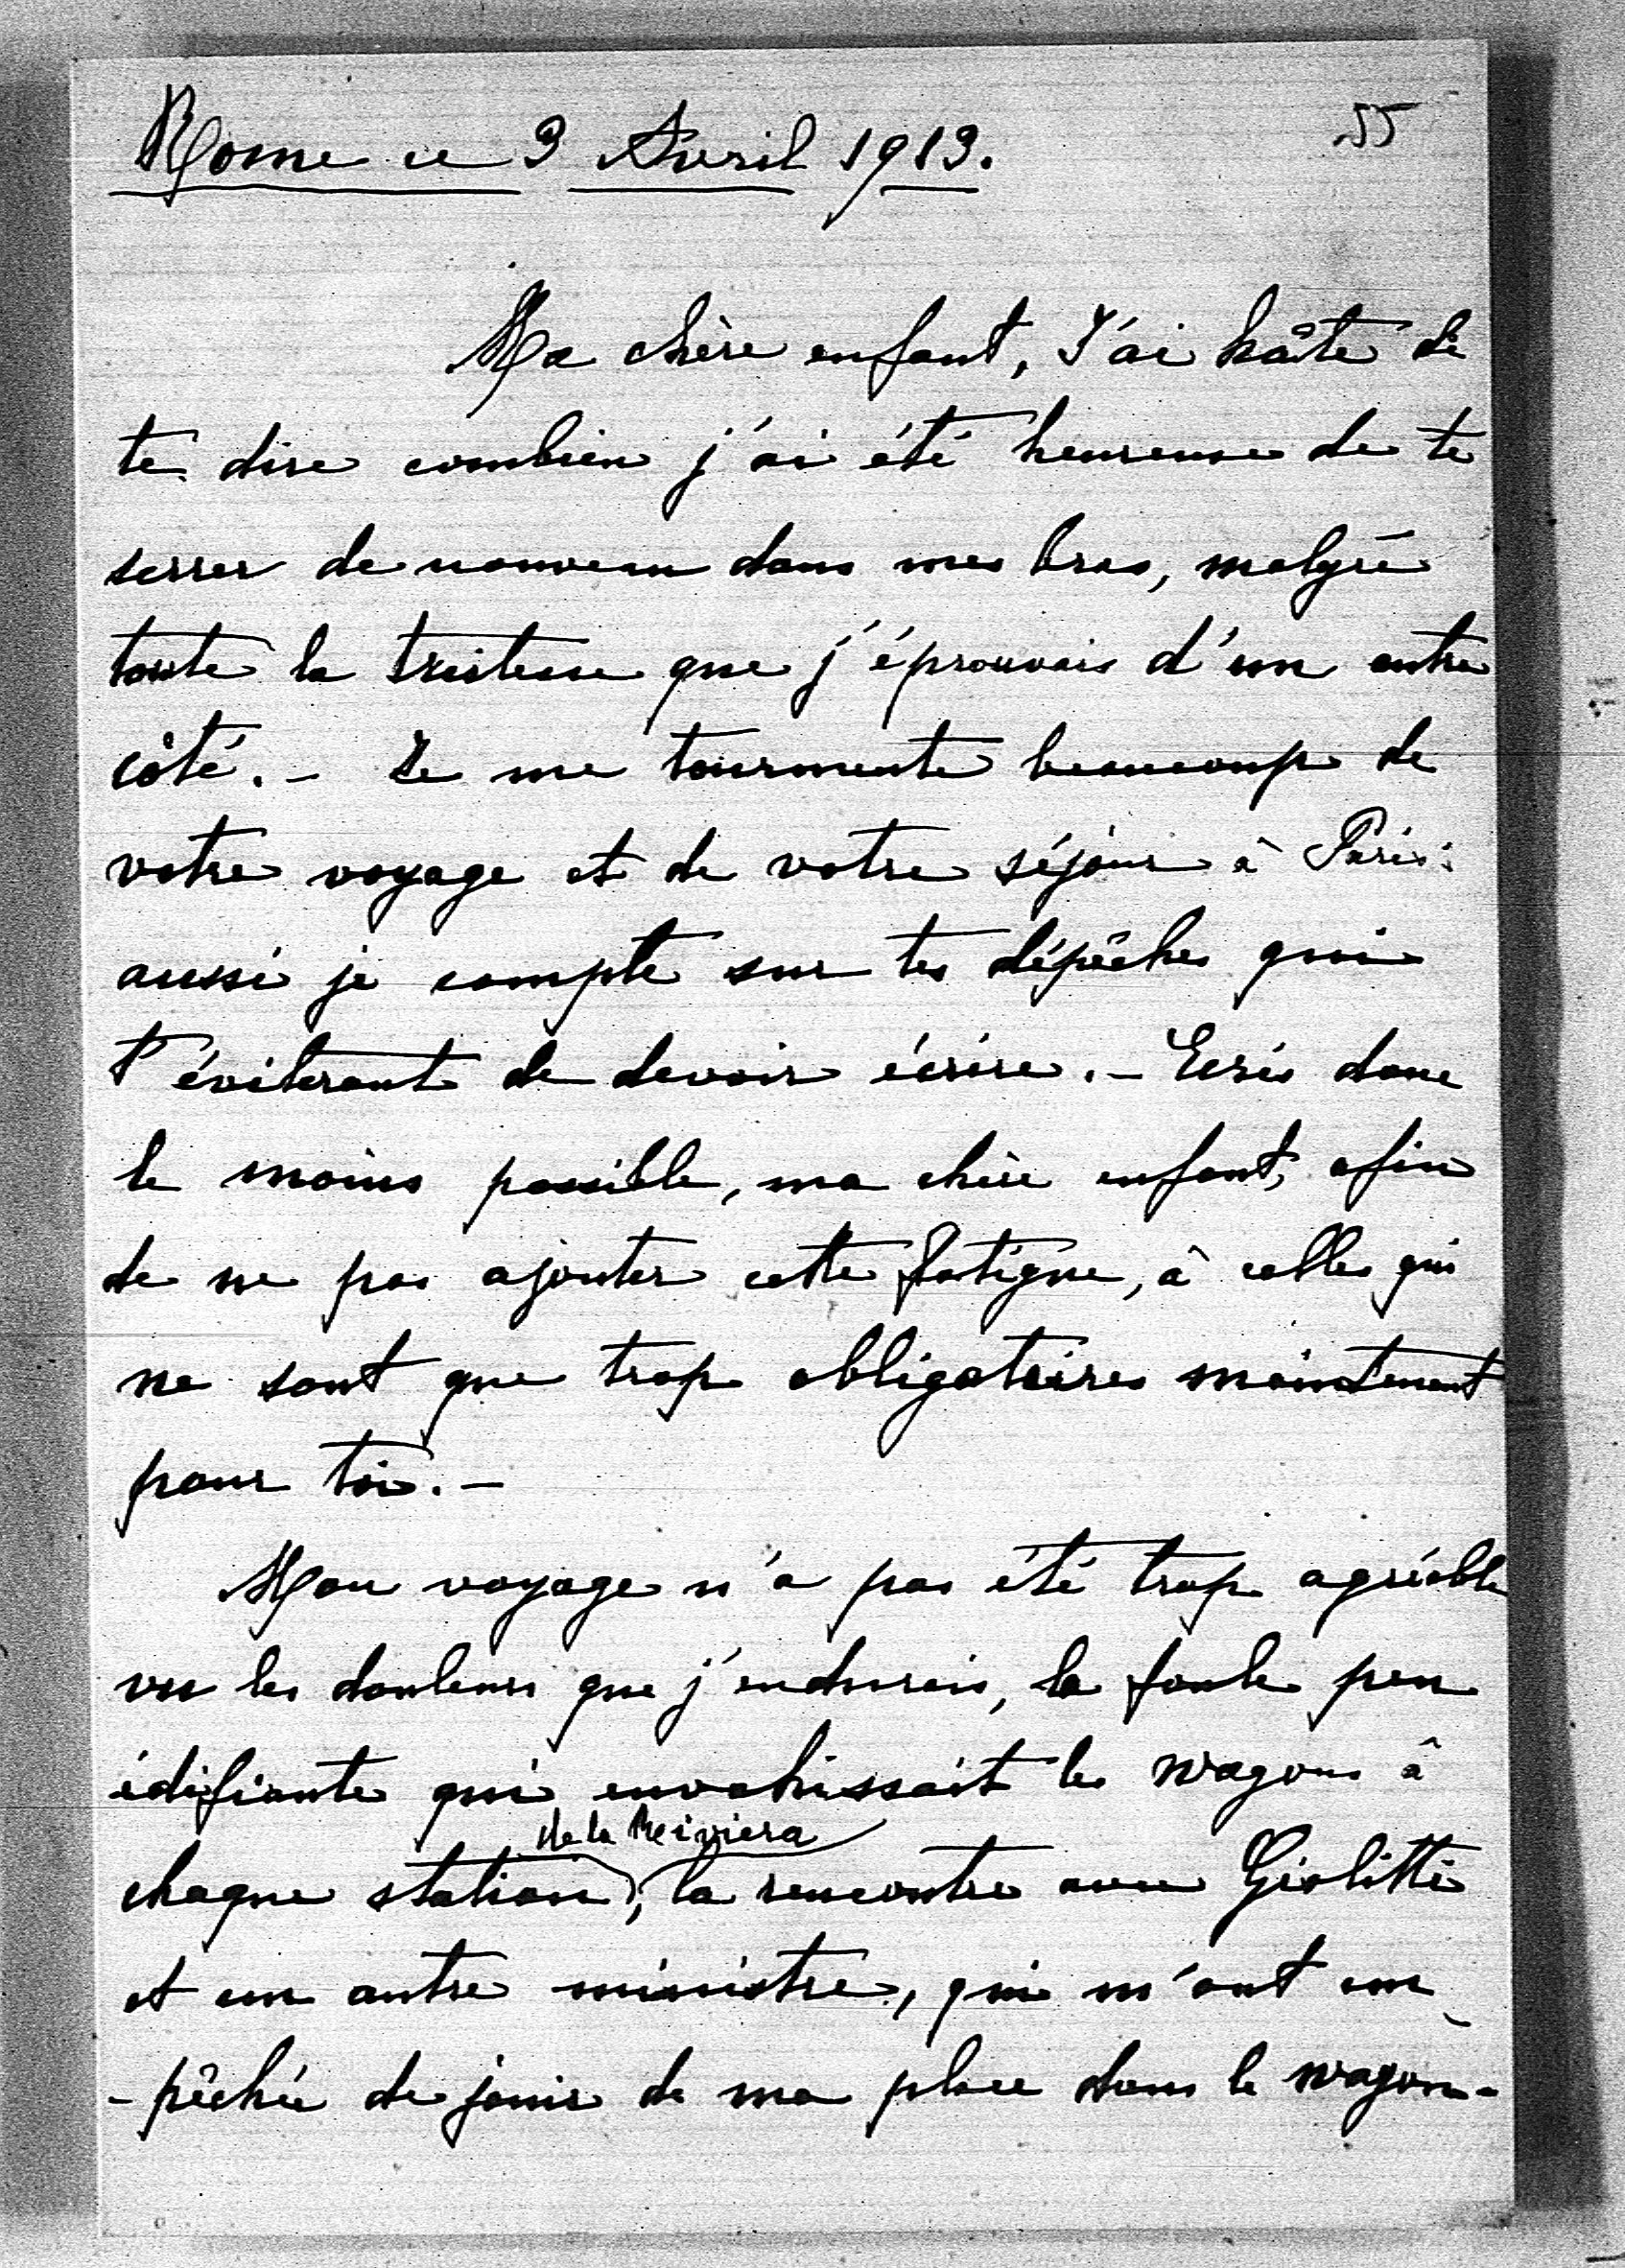 55
Rome ce 3 Avril 1913.
Ma chère enfant, J'ai hâte de
te dire combien j'ai été heureuse de te
serrer de nouveau dans mes bras, malgré
toute la tristesse que j'éprouvais d'un autre
côté. – Je me tourmente beaucoup de
votre voyage et de votre séjour à Paris:
aussi je compte sur tes dépêches qui
t'éviteront de devoir écrire. – Ecris donc
le moins possible, ma chère enfant, afin
de ne pas ajouter cette fatigue, à celles qui
ne sont que trop obligatoires maintenant
pour toi. –
Mon voyage n'a pas été trop agréable
vu les douleurs que j'endurais, la foule peu
édifiante qui envahissait les wagons à
de la Reiviera
chaque station, la rencontre avec Giolitti
et un autre ministre, qui m'ont em-
-pêchée de jouir de ma place dans le wagon-